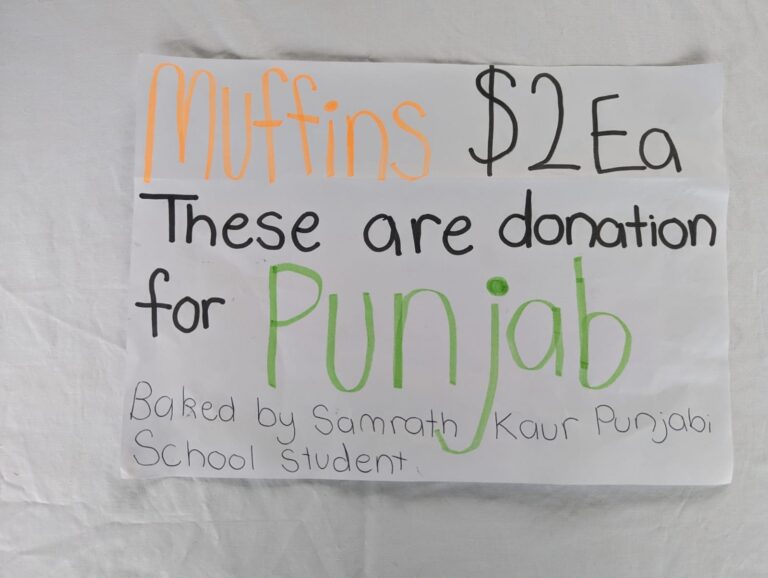 Muffins $2 Ea
These are donation
for Punjab
Baked by Samrath Kaur Punjabi
School Student.